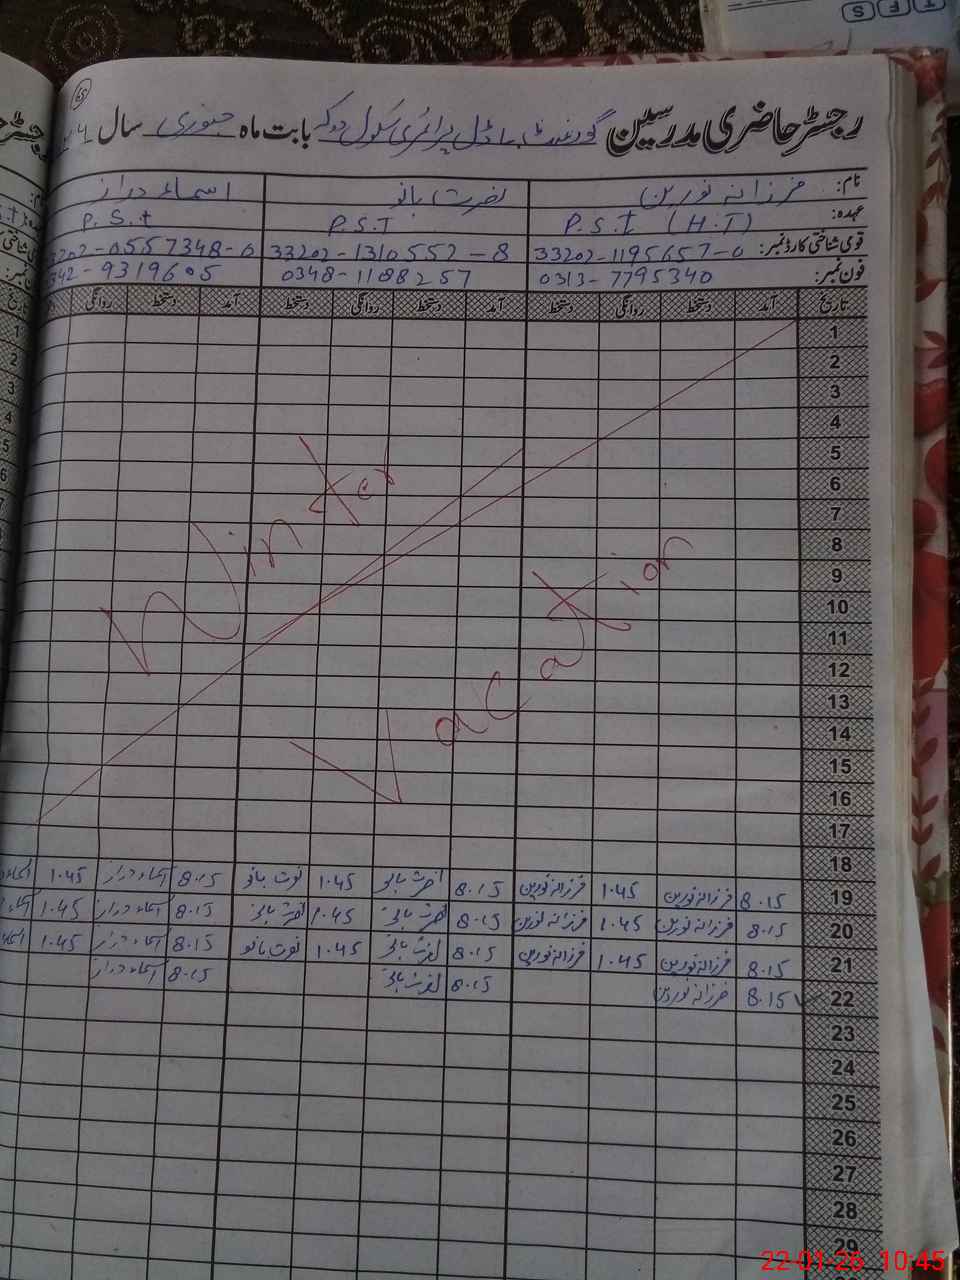 65
رجسٹر حاضری مدرسین گورنمنٹ ماڈل پرائمری سکول دوکہ بابت ماہ جنوری سال
نام: فرزانہ نورین نصرت بانو اسماء دراز
عہدہ: P.S.T (H.T) P.S.T P.S.t
قومی شناختی کارڈ نمبر: 33202-1195657-0 33202-1310552-8 3202-0557348-0
فون نمبر: 0313-7795340 0348-1108257 342-9319605
تاریخ آمد دستخط روانگی دستخط آمد دستخط روانگی دستخط آمد دستخط روانگی
1
2
3
4
5
6
7
8
9
10
11
12
13
14
15
16
17
18
Winter
Vacation
19 8.15 فرزانہ نورین 1.45 فرزانہ نورین 8.15 نصرت بانو 1.45 نصرت بانو 8.15 اسماء دراز 1.45
20 8.15 فرزانہ نورین 1.45 فرزانہ نورین 8.15 نصرت بانو 1.45 نصرت بانو 8.15 اسماء دراز 1.45
21 8.15 فرزانہ نورین 1.45 فرزانہ نورین 8.15 نصرت بانو 1.45 نصرت بانو 8.15 اسماء دراز 1.45
22 8.15 فرزانہ نورین 8.15 نصرت بانو 8.15 اسماء دراز
23
24
25
26
27
28
29
22-01-26 10:45